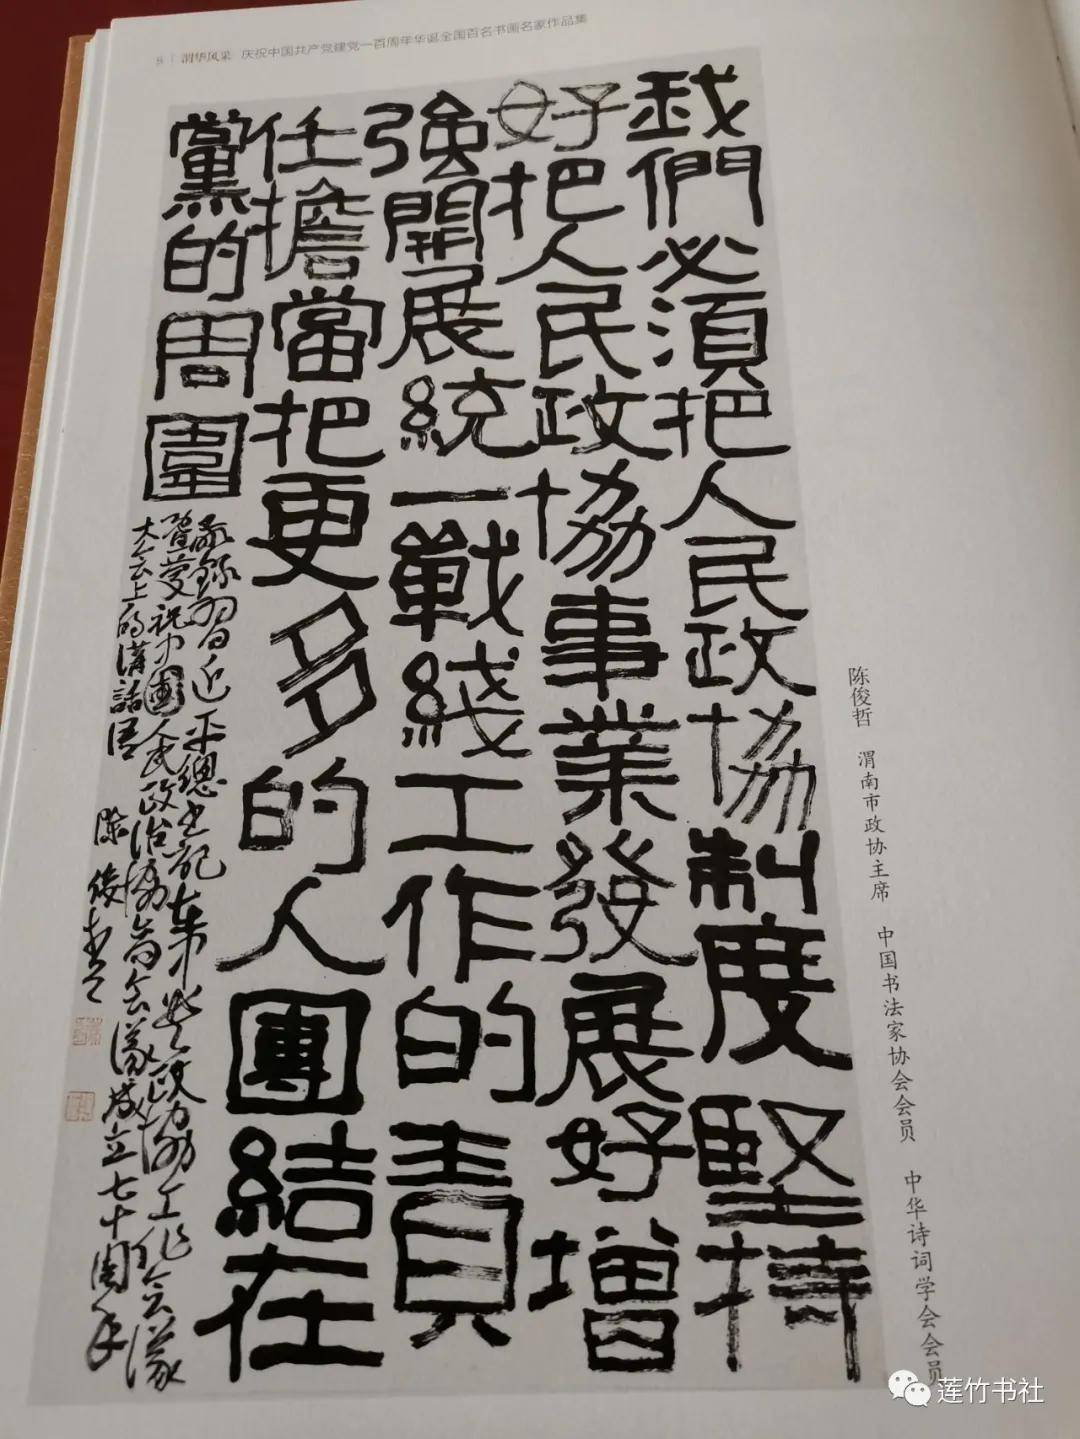 8 | 渭华风采 庆祝中国共产党建党一百周年华诞全国百名书画名家作品集
我們必須把人民政協制度堅持
好把人民政協事業發展好增
強開展統一戰綫工作的責
任擔當把更多的人團結在
黨的周圍
录習近平總书記在中央政協工作会議
暨慶祝中國人民政治協商会議成立七十周年
大会上的講話 陈俊哲
陈俊哲 渭南市政协主席 中国书法家协会会员 中华诗词学会会员
莲竹书社